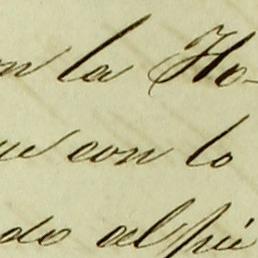 on la Ho-
ue con lo
do al pié